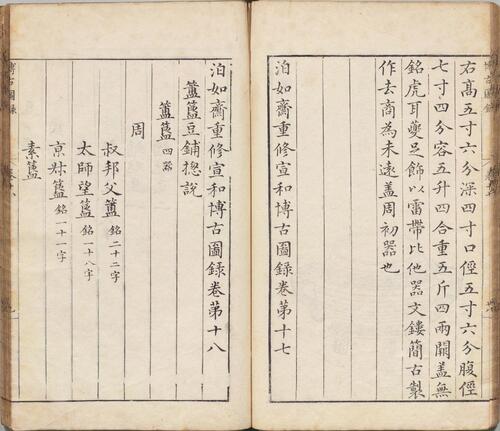 右高五寸六分深四寸口徑五寸六分腹徑
七寸四分容五升四合重五斤四兩闕蓋無
銘虎耳夔足飾以雷帶比他器文鏤簡古製
作去商為未遠蓋周初器也
泊如齋重修宣和博古圖錄卷第十七
泊如齋重修宣和博古圖錄卷第十八
簠簋豆鋪揔說
簠簋四器
周
叔邦父簠銘二十二字
太師望簋銘一十八字
京姝簋銘一十一字
素簋
博古圖錄